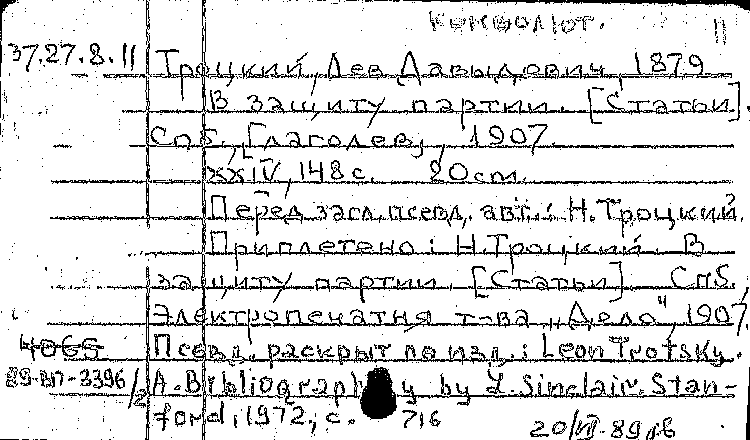 конволют. 11
37.27.8.11 Троцкий, Лев Давыдович, 1879
В защиту партии. [Статьи].
Спб., [Глаголев], 1907.
XXIV, 148 с. 20 cm.
Перед загл. псевд. авт.: Н. Троцкий.
Приплетено: Н. Троцкий. В
защиту партии. [Статьи] Спб.,
Электропечатня т-ва „Дело", 1907
4065 Псевд. раскрыт по изд.: Leon Trotsky.
89-ВП-3396/2 A. Bibliography by L. Sinclair. Stan-
ford, 1972, с. 716
20/VI-89